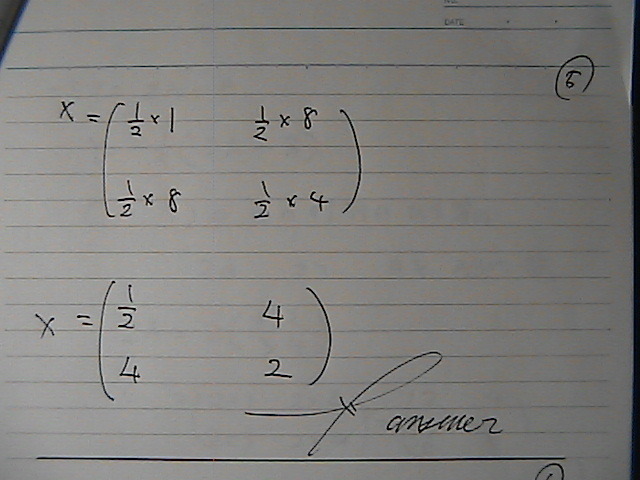 DATE
5
X = ( 1/2 × 1 1/2 × 8
1/2 × 8 1/2 × 4 )
X = ( 1/2 4
4 2 )
answer